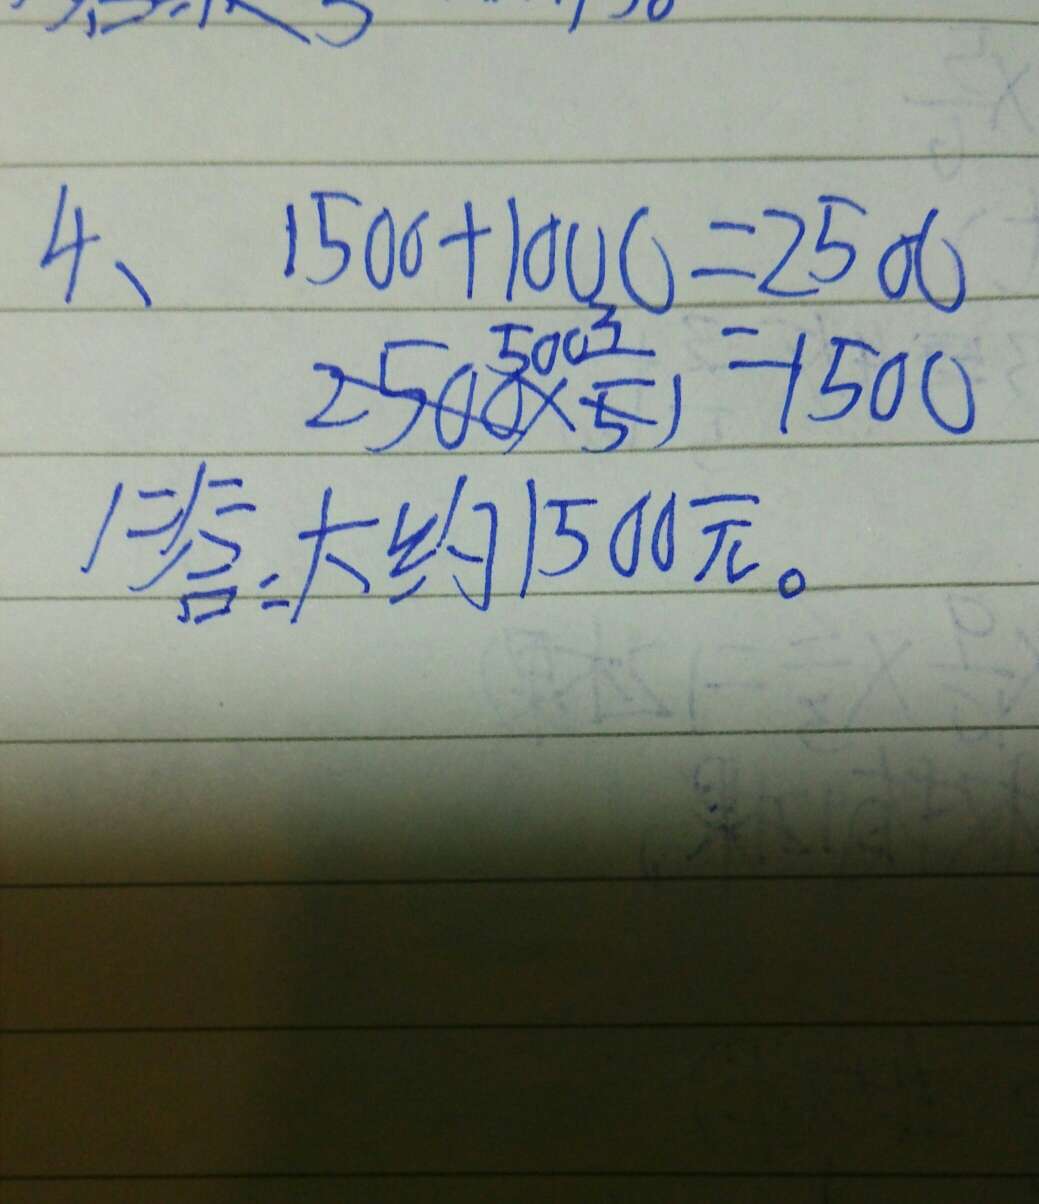 4、 1500+1000=2500
2500×3/5=1500
答:大约1500元。